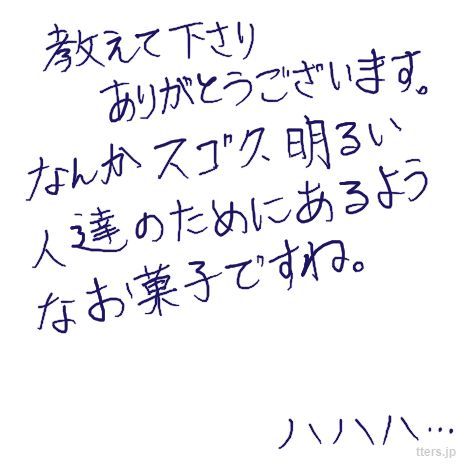 教えて下さり
ありがとうございます。
なんかスゴク明るい
人達のためにあるよう
なお菓子ですね。
ハハハ…
tters.jp